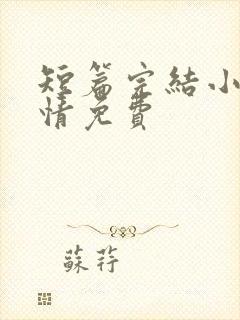 短篇完結小
情免費
蘇荇